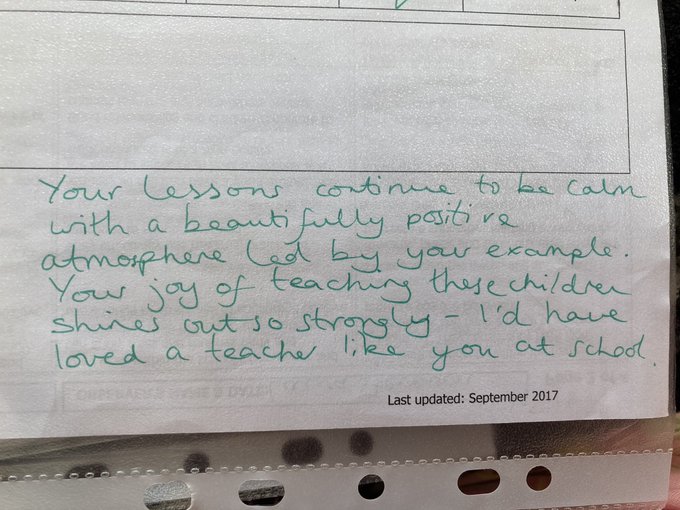 Your lessons continue to be calm
with a beautifully positive
atmosphere led by your example.
Your joy of teaching these children
shines out so strongly – I'd have
loved a teacher like you at school.
Last updated: September 2017